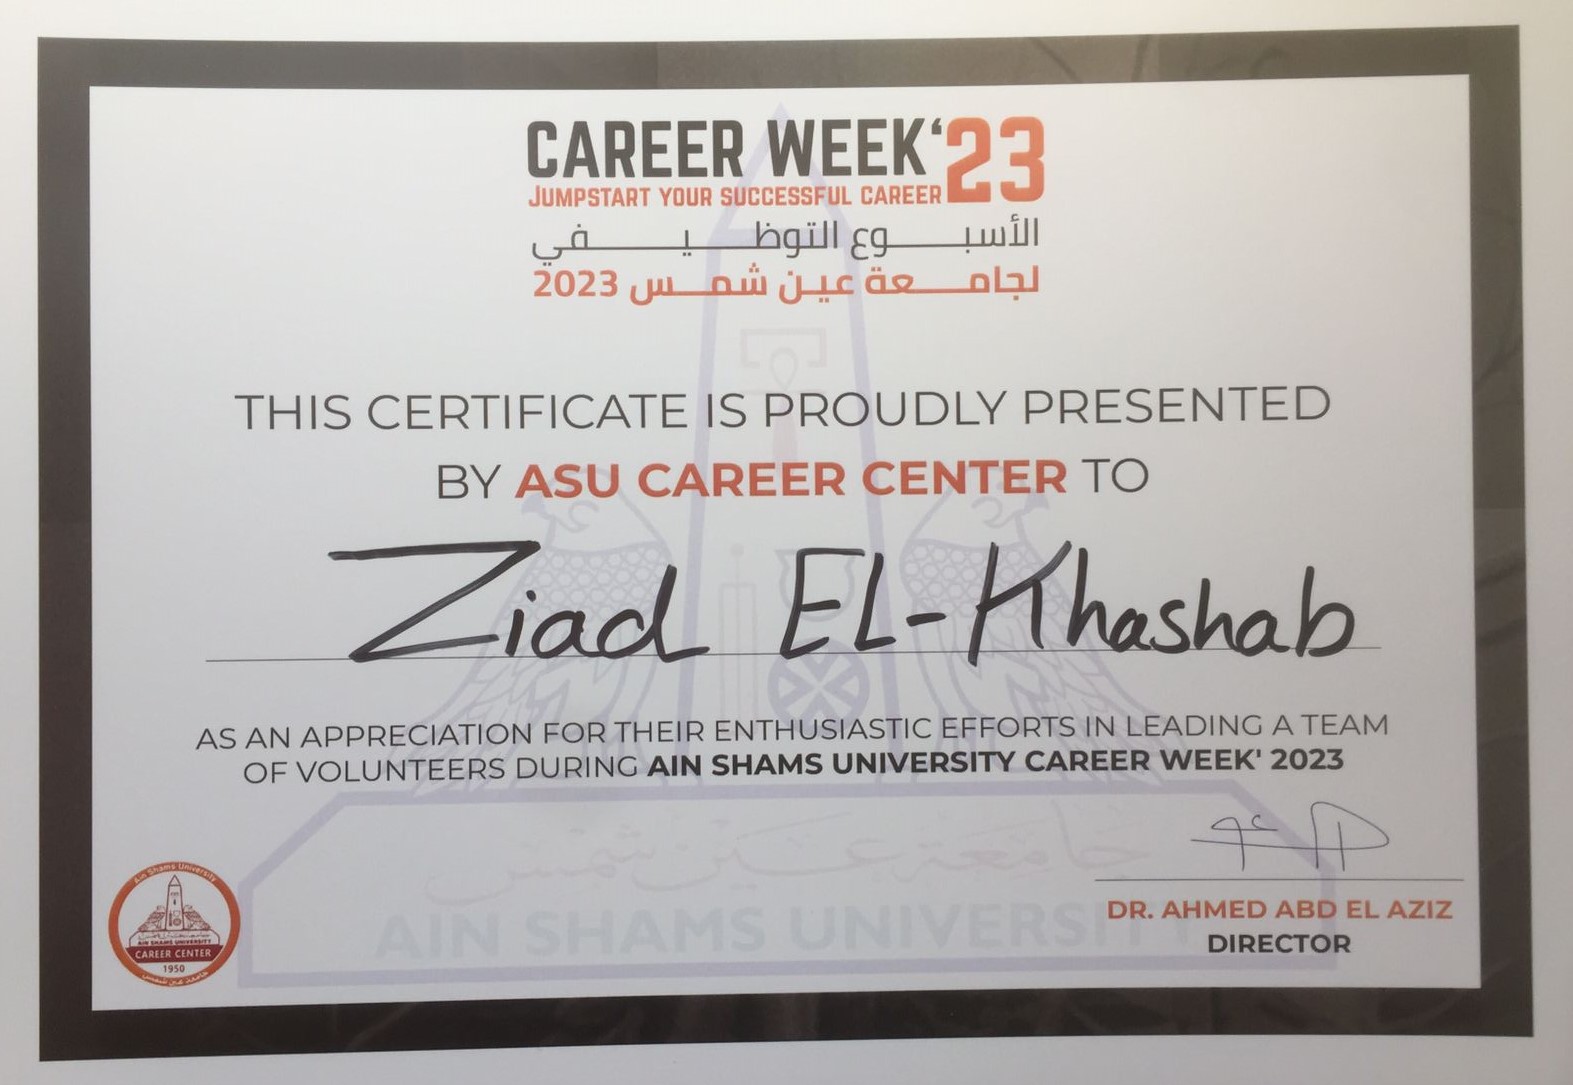 CAREER WEEK‘23
JUMPSTART YOUR SUCCESSFUL CAREER
الأسبوع التوظيفي
لجامعة عين شمس 2023
THIS CERTIFICATE IS PROUDLY PRESENTED
BY ASU CAREER CENTER TO
Ziad EL-Khashab
AS AN APPRECIATION FOR THEIR ENTHUSIASTIC EFFORTS IN LEADING A TEAM
OF VOLUNTEERS DURING AIN SHAMS UNIVERSITY CAREER WEEK' 2023
جامعة عين شمس
AIN SHAMS UNIVERSITY
DR. AHMED ABD EL AZIZ
DIRECTOR
Ain Shams University
AIN SHAMS UNIVERSITY
CAREER CENTER
1950
جامعة عين شمس